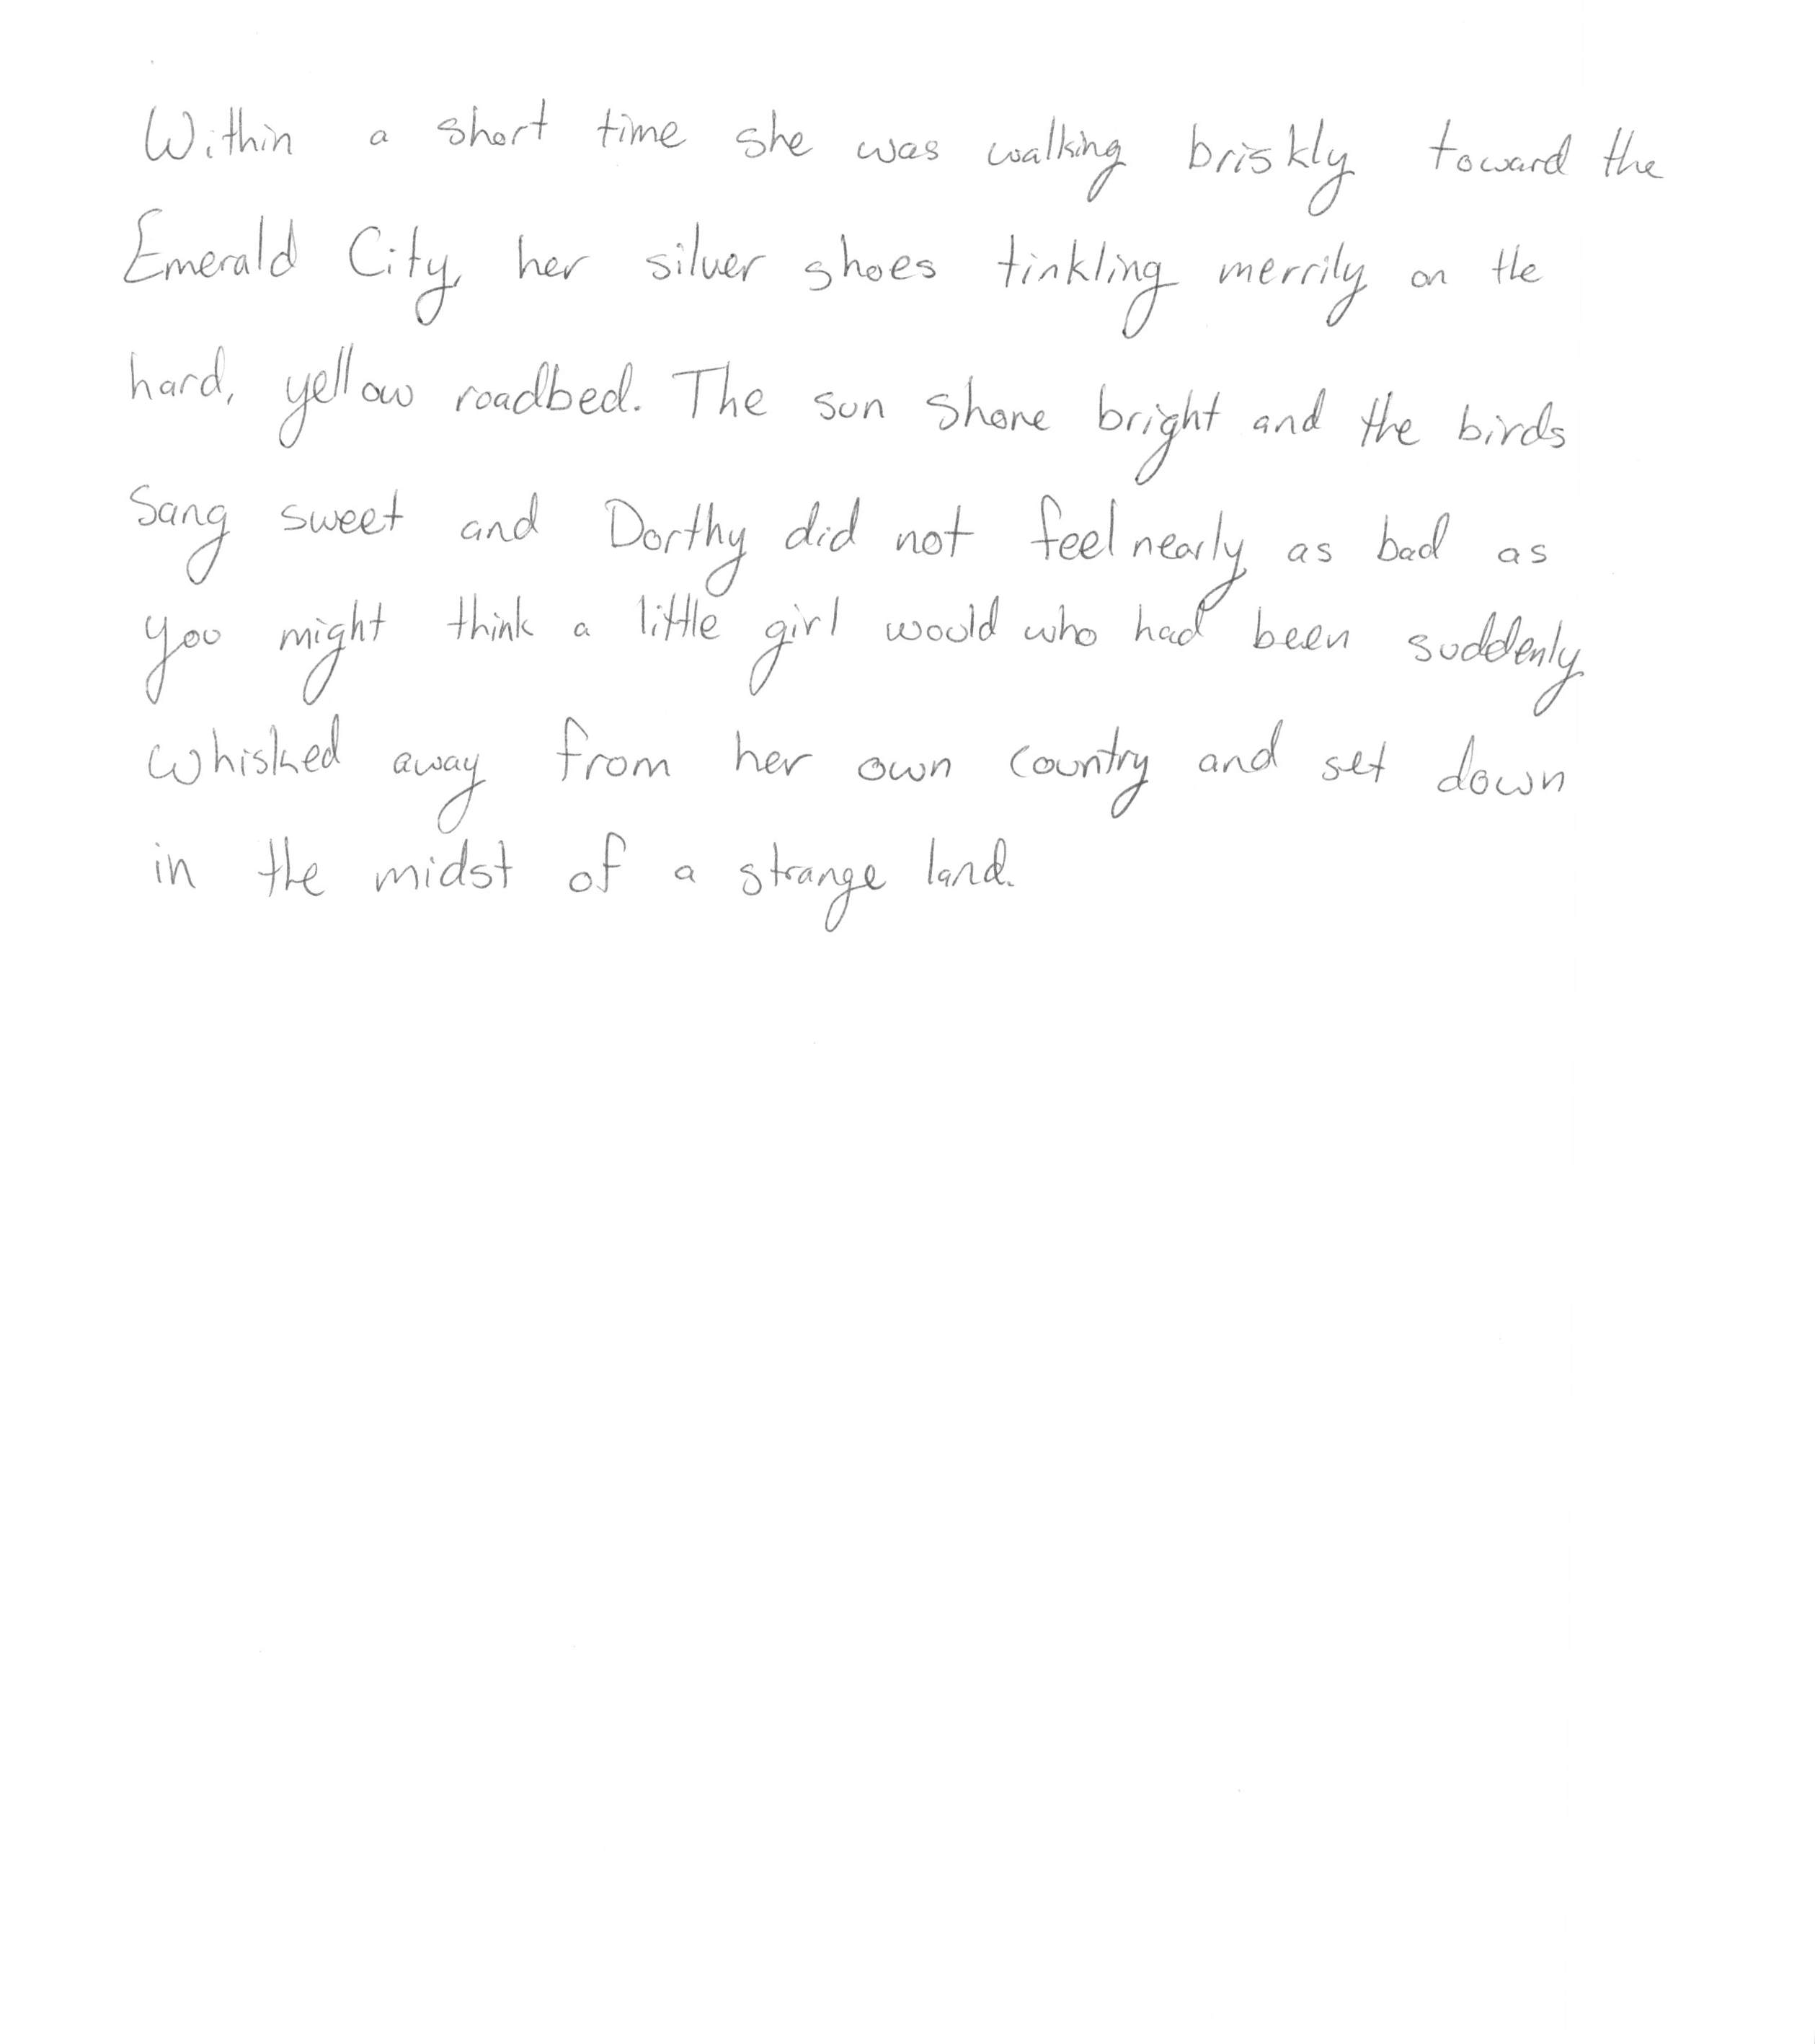 Within a short time she was walking briskly toward the
Emerald City, her silver shoes tinkling merrily on the
hard, yellow roadbed. The sun shone bright and the birds
Sang sweet and Dorthy did not feel nearly as bad as
you might think a little girl would who had been suddenly
whisked away from her own country and set down
in the midst of a strange land.